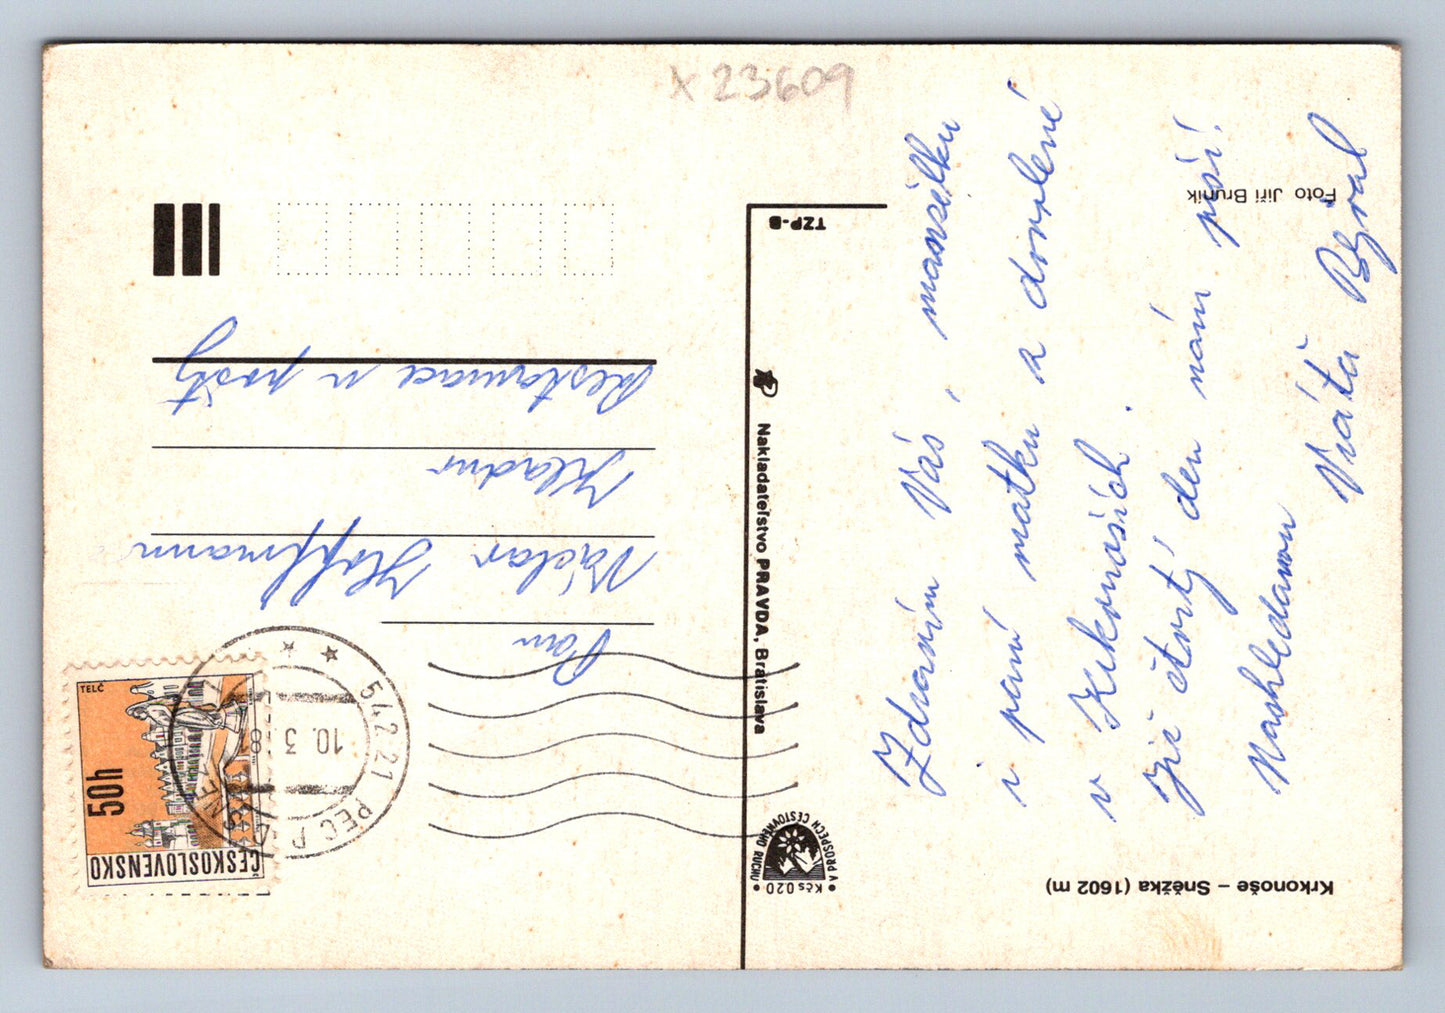 x 23609
Krkonoše – Sněžka (1602 m)
Foto Jiří Brunik
TZP-B
Nakladateľstvo PRAVDA, Bratislava
V PROSPECH CESTOVNÉHO RUCHU
Kčs 0.20
Zdravím Vás, manželku
i paní matku z dovolené
v Krkonoších.
Již čtvrtý den nám prší.
Nashledanou
Vráťa
ČESKOSLOVENSKO
50h
TELČ
542 21 PEC P. SNĚ
10. 3. 81
Pan
Václav Hoffmann
Restaurace u pošty